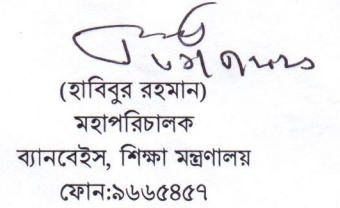 (হাবিবুর রহমান)
মহাপরিচালক
ব্যানবেইস, শিক্ষা মন্ত্রণালয়
ফোন:৯৬৬৫৪৫৭